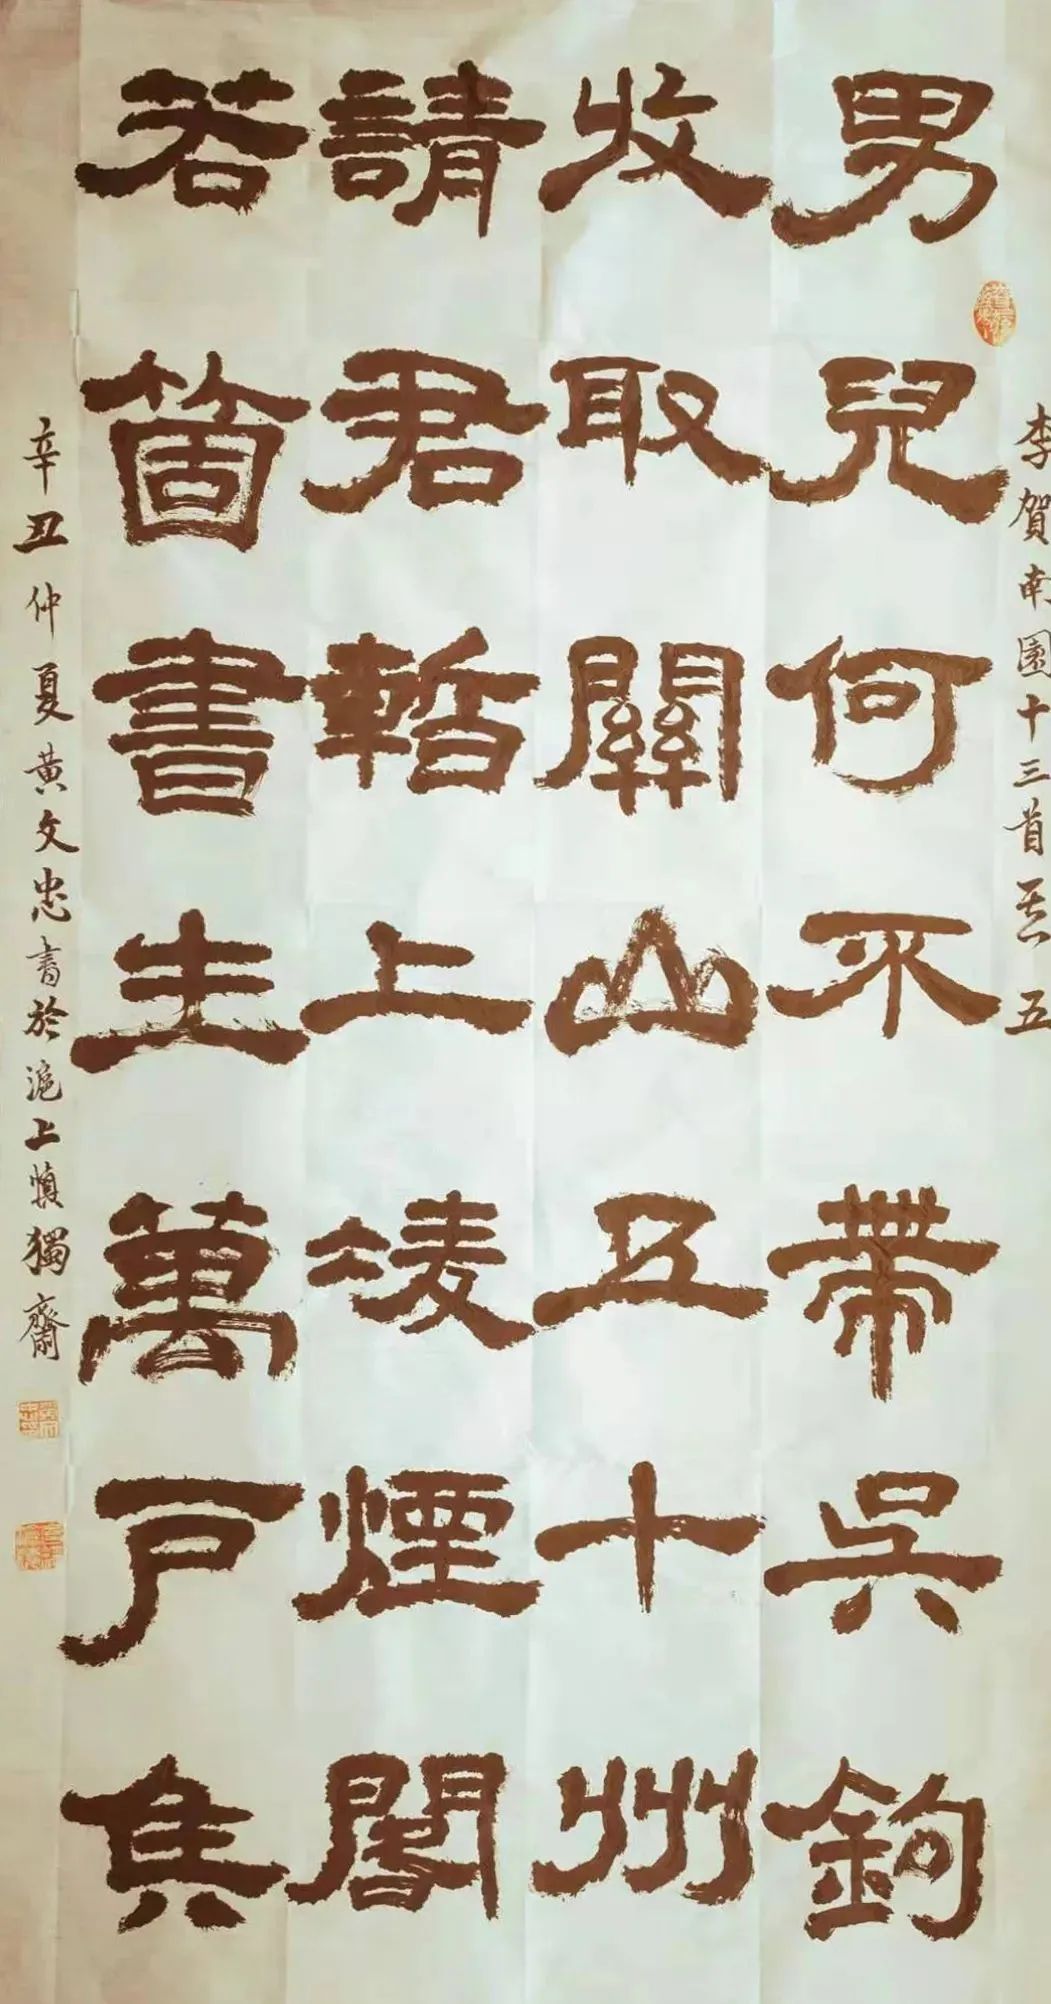 李賀南園十三首其五
男兒何不帶吳鉤
收取關山五十州
請君暫上凌煙閣
若箇書生萬戶侯
辛丑仲夏黃文忠書於滬上慎獨齋